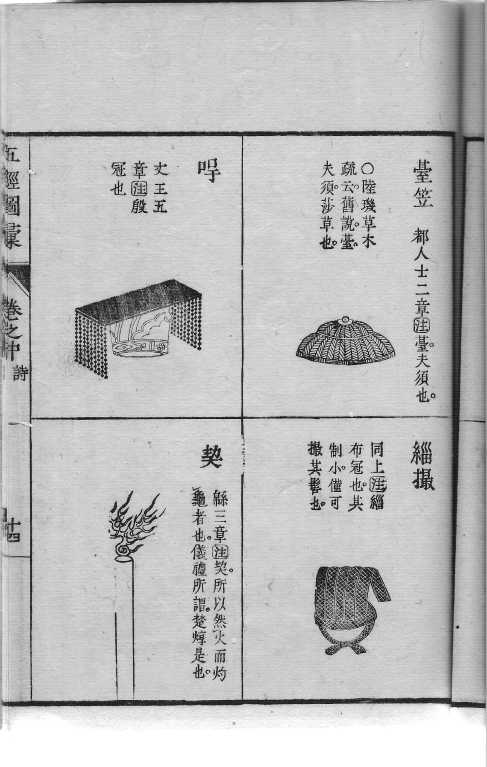 臺笠
都人士二章注臺。夫須也。
○陸璣草木
疏云。舊說。臺。
夫須。莎草也。
緇撮
同上注緇
布冠也。其
制小。僅可
撮其髻也。
冔
文王五
章注殷
冠也
契
緜三章注契。所以然火而灼
龜者也。儀禮所謂。楚焞是也。
五經圖彙
卷之中
詩
十四